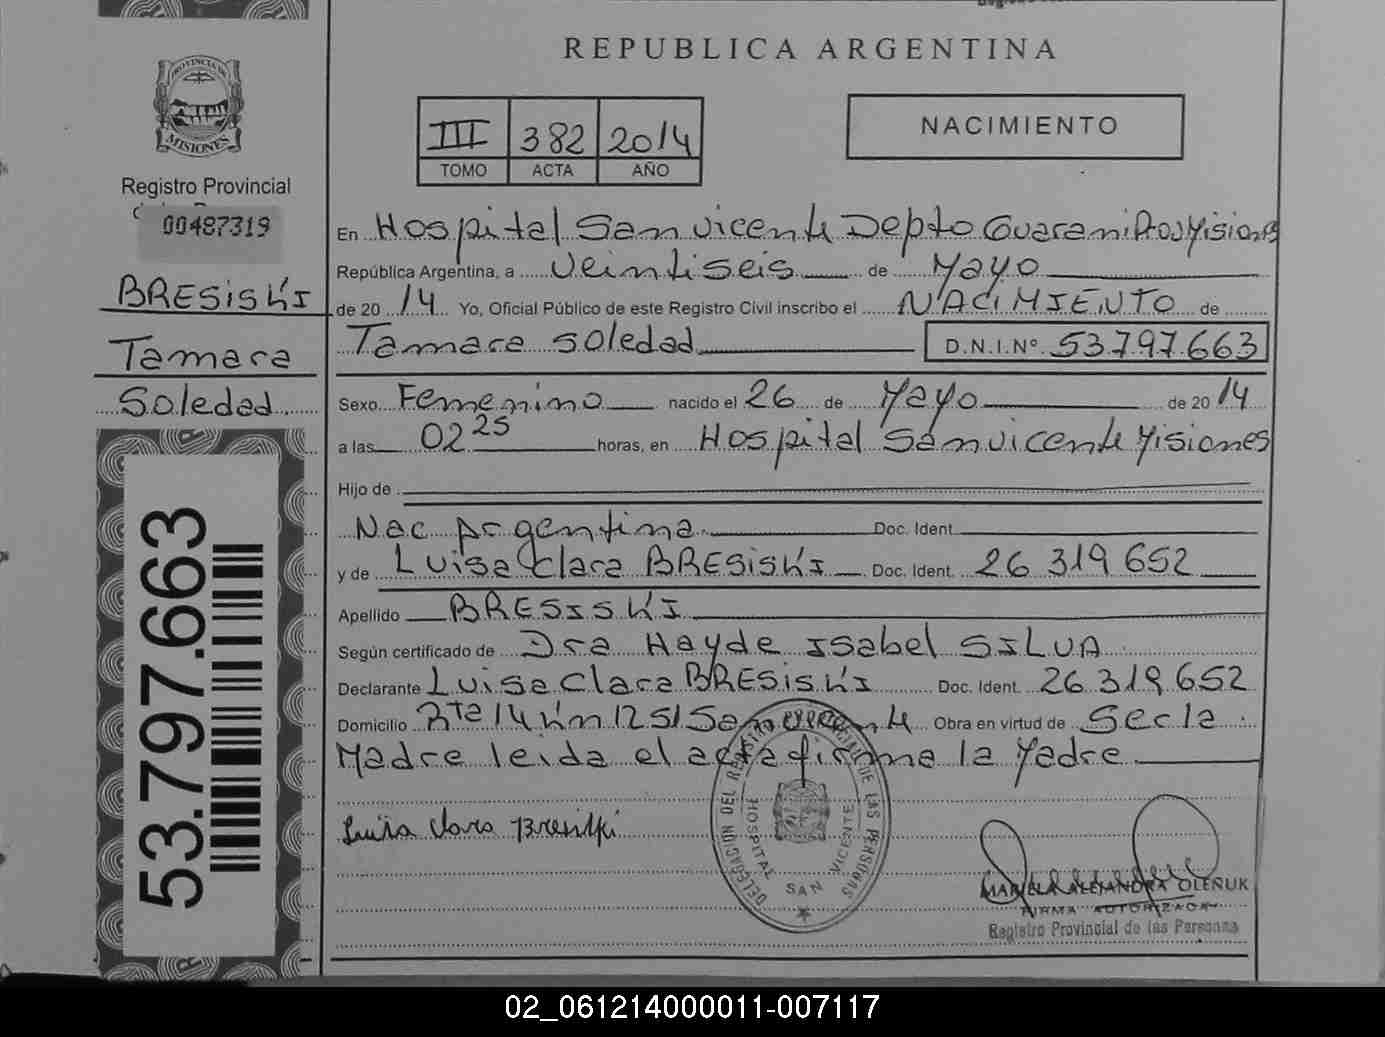 REPUBLICA ARGENTINA
PROVINCIA DE
MISIONES
Registro Provincial
00487319
BRESISKI
Tamara
Soledad
53.797.663
III 382 2014
TOMO ACTA AÑO
NACIMIENTO
En Hospital San vicente Depto Guarani Prov Misiones
República Argentina, a veintiseis de Mayo
de 20 14 Yo, Oficial Público de este Registro Civil inscribo el NACIMIENTO de
Tamara Soledad D.N.I.Nº 53.797.663
Sexo Femenino nacido el 26 de Mayo de 20 14
a las 02 25 horas, en Hospital San vicente Misiones
Hijo de
Nac Argentina Doc. Ident.
y de Luisa Clara BRESISKI Doc. Ident. 26 319 652
Apellido BRESISKI
Según certificado de Dra Hayde Isabel SILVA
Declarante Luisa Clara BRESISKI Doc. Ident. 26 319 652
Domicilio Rta 14 Km 1251 San vicente Obra en virtud de Ser la
Madre leida el acta firma la Madre
Luisa Clara Bresiski
DELEGACION DEL REGISTRO PROVINCIAL DE LAS PERSONAS
HOSPITAL SAN VICENTE
ALEJANDRA OLENUK
FIRMA AUTORIZADA
Registro Provincial de las Personas
02_061214000011-007117